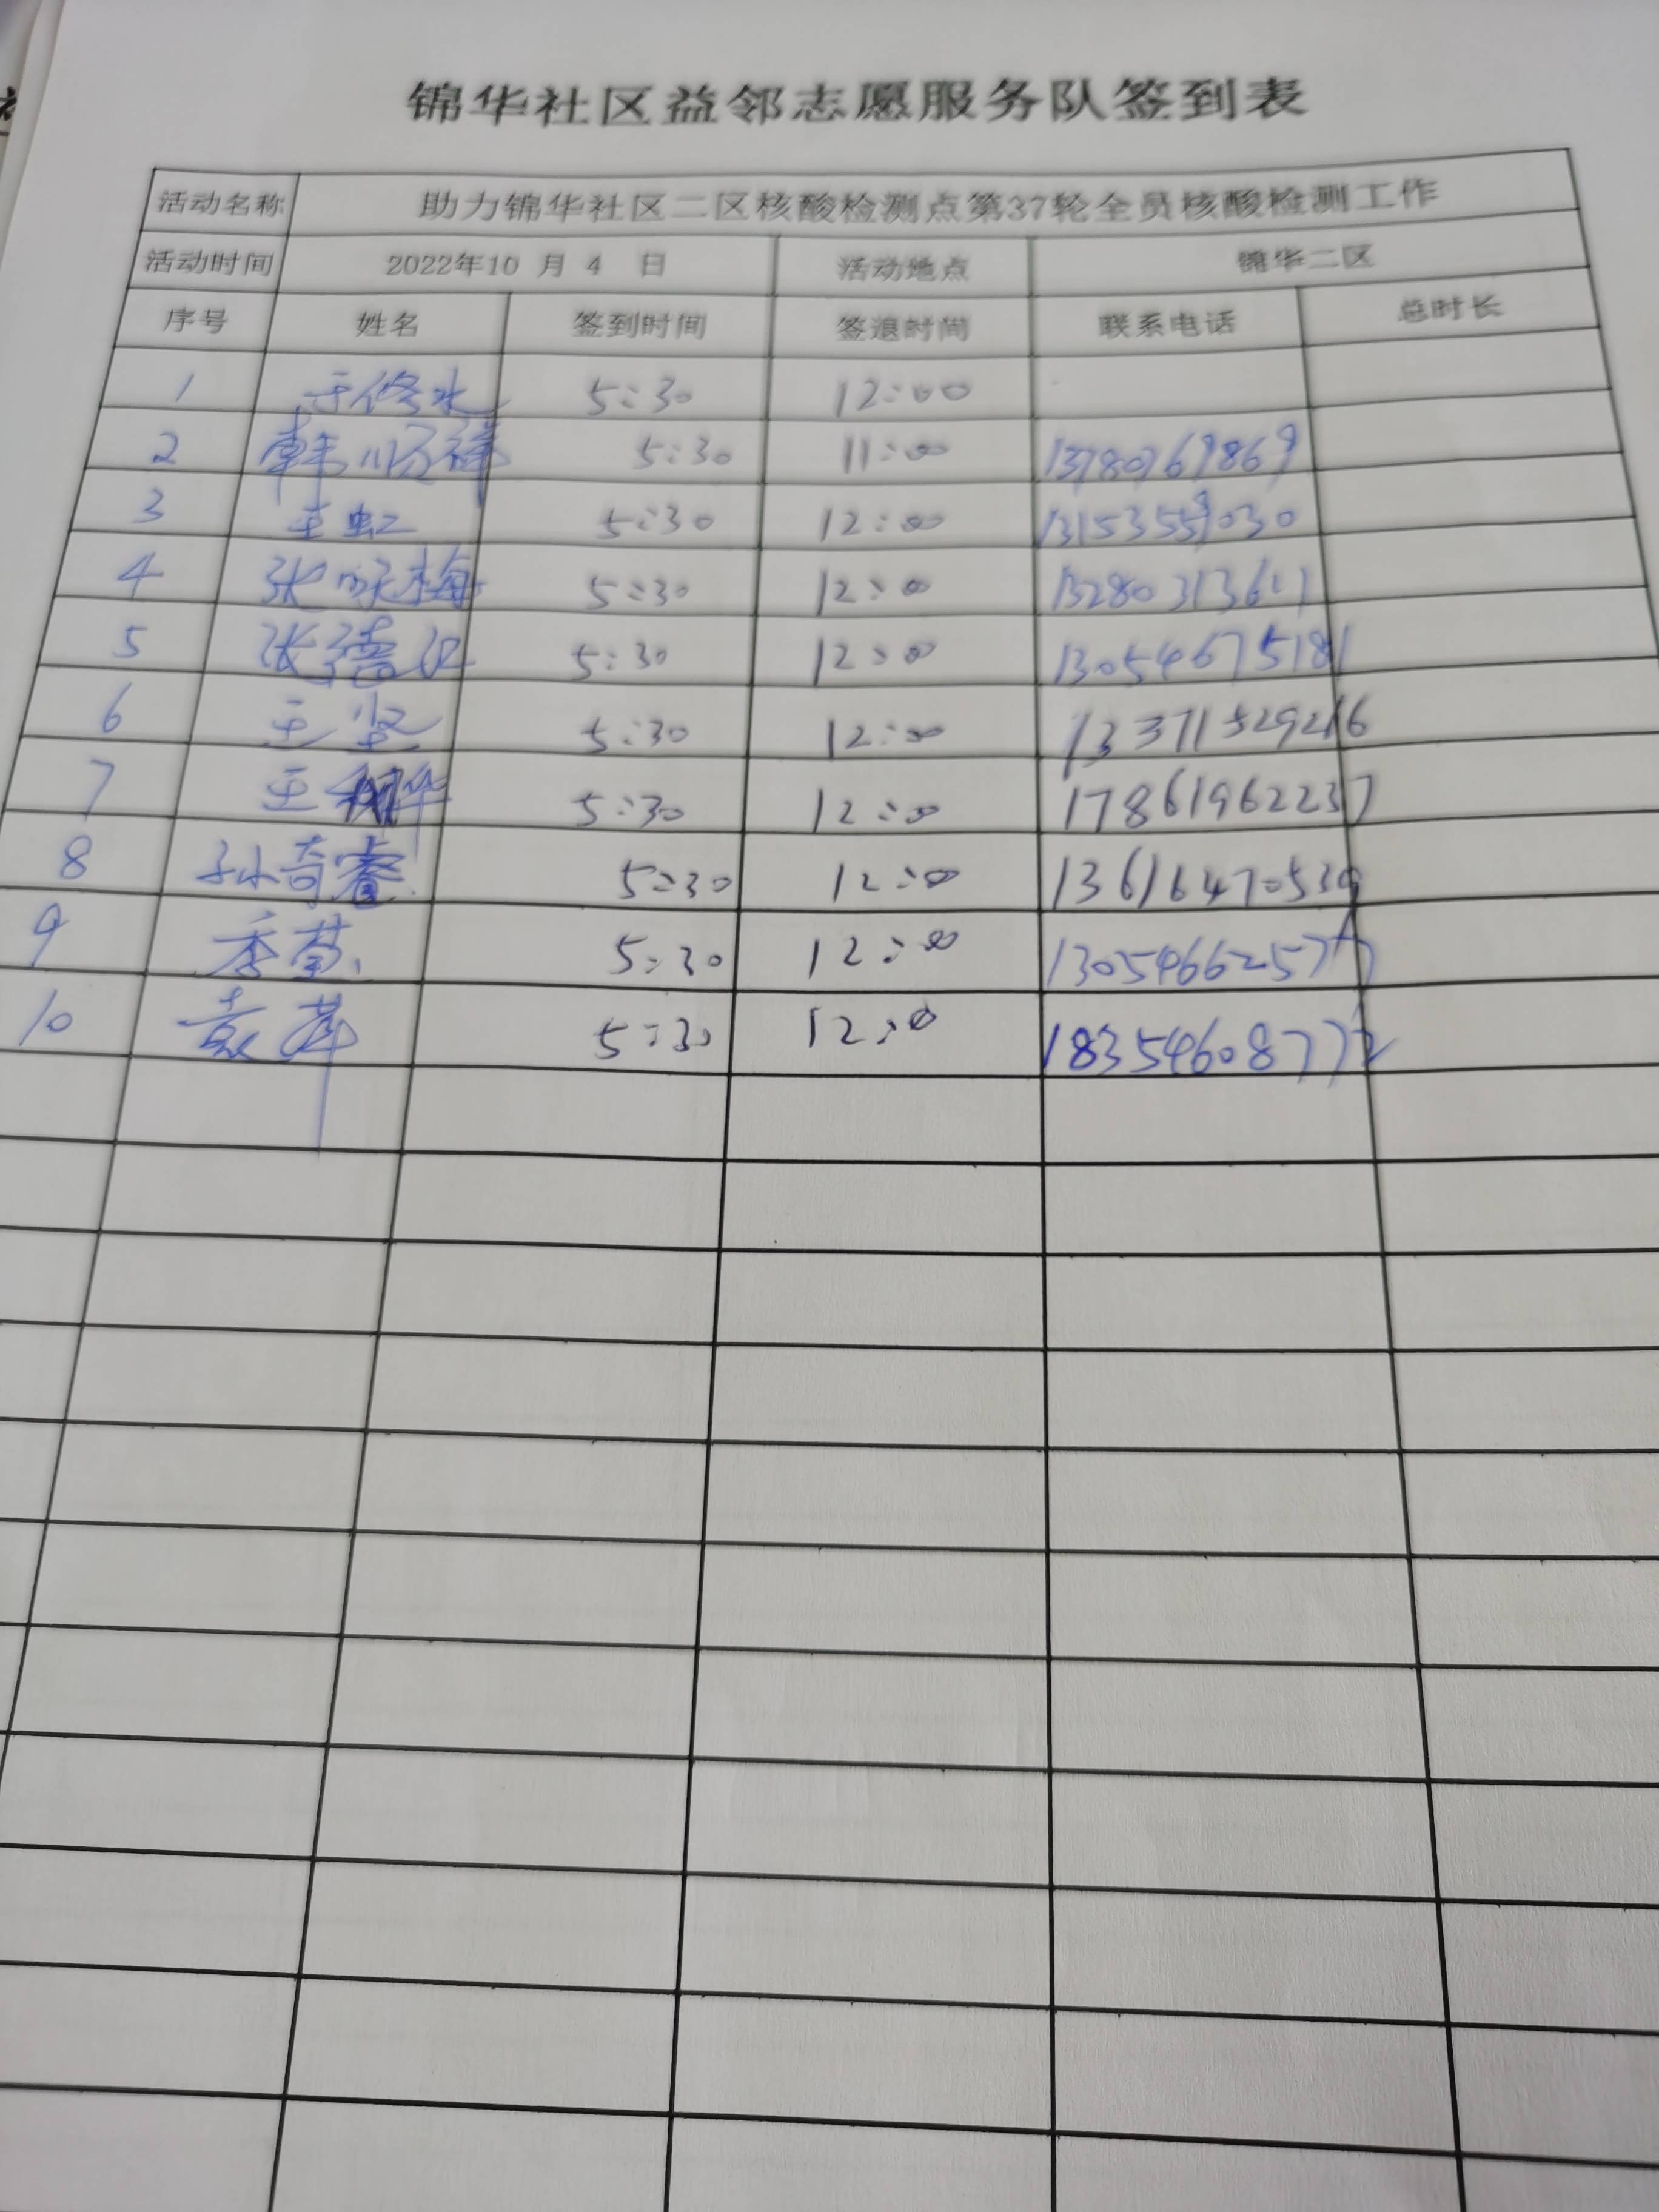 锦华社区益邻志愿服务队签到表
活动名称 助力锦华社区二区核酸检测点第37轮全员核酸检测工作
活动时间 2022年10 月 4 日 活动地点 锦华二区
序号 姓名 签到时间 签退时间 联系电话 总时长
1 于修水 5:30 12:00
2 韩顺祥 5:30 11:00 13780769869
3 王虹 5:30 12:00 13153559030
4 张咏梅 5:30 12:00
5 张德江 5:30 12:00 13054675181
6 王坚 5:30 12:00 13371529216
7 王 华 5:30 12:00 17861962237
8 孙奇睿 5:30 12:00 13616470539
9 季菊 5:30 12:00
10 袁萍 5:30 12:00 18354608772